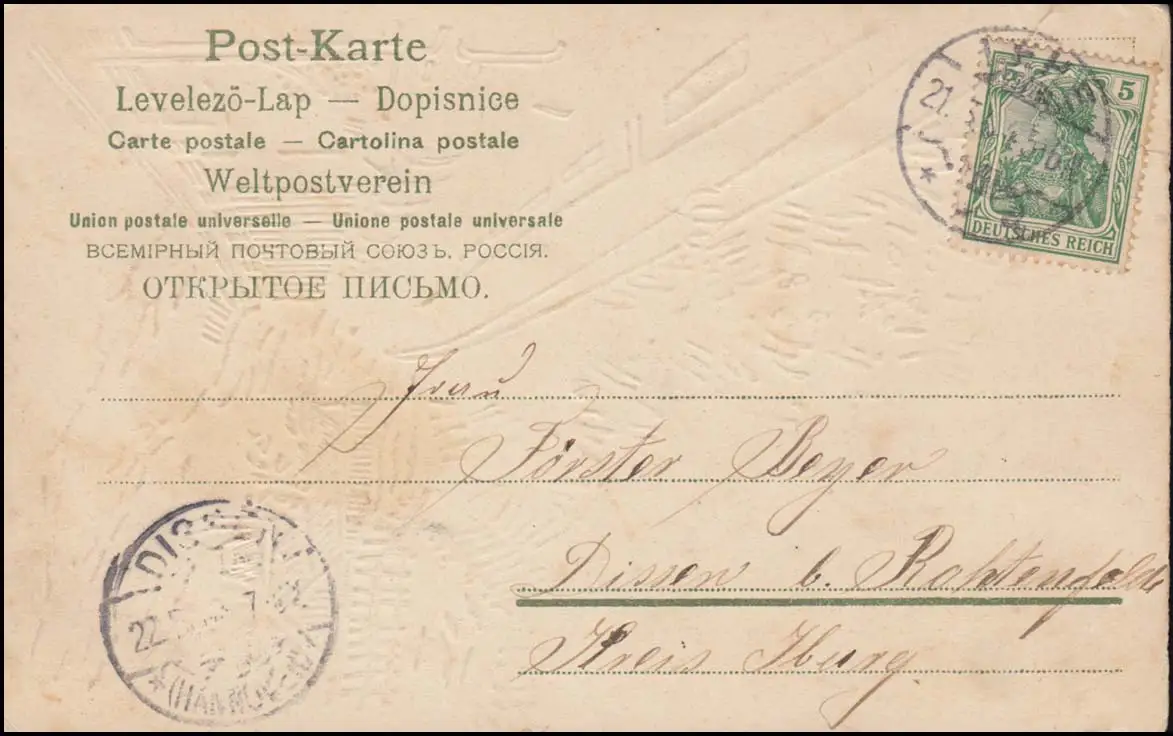 Post-Karte
Levelező-Lap — Dopisnice
Carte postale — Cartolina postale
Weltpostverein
Union postale universelle — Unione postale universale
ВСЕМІРНЫЙ ПОЧТОВЫЙ СОЮЗЪ. РОССІЯ.
ОТКРЫТОЕ ПИСЬМО.
21.
5
DEUTSCHES REICH
Frau
Förster Beyer
Dissen b. Rohtenfelde
Kreis Iburg
22. 7-8V
(HANNOVER)